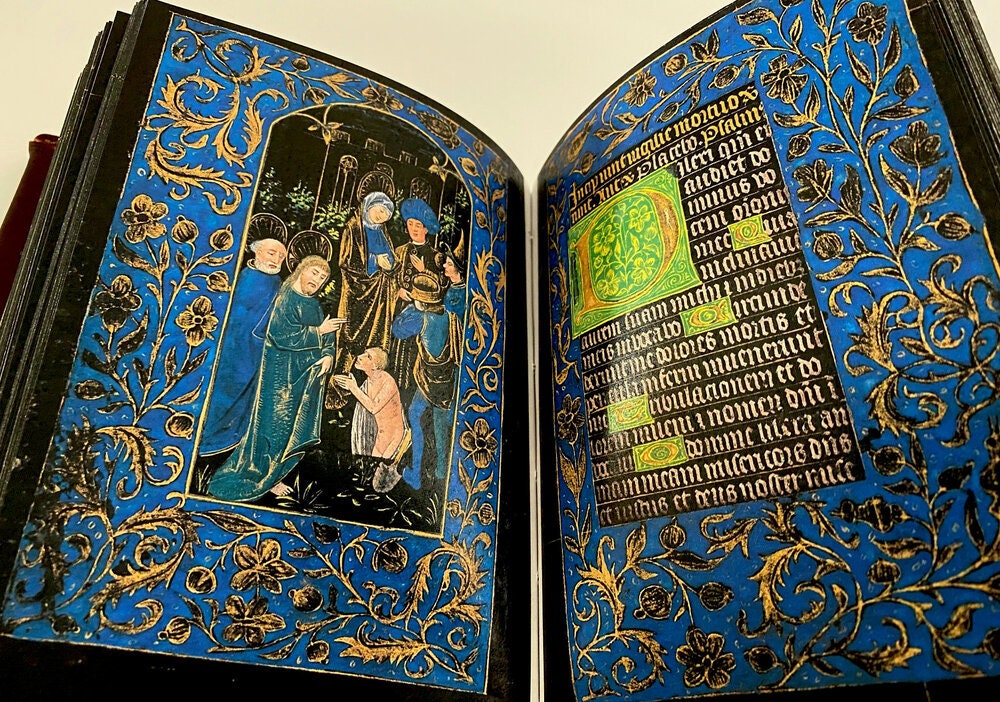 Incipiunt vigilie mortuox
Placebo Psalm
Dilexi qm ex
audiet do
minus vo
cem oronis
mee Quia
inclinauit
aurem suam michi et in dieb
meis inuocabo
derunt me dolores mortis et
pericula inferni inuenerunt
me Tribulationem et do
lorem inueni et nomen dni i
O domine libera ani
mam meam misericors dns
et iustus et deus noster